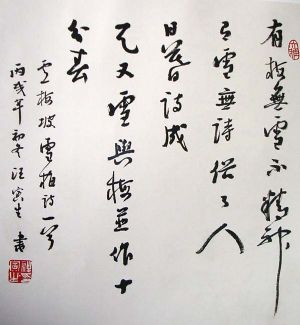 有梅無雪不精神
有雪無詩俗了人
日暮詩成
天又雪與梅並作十
分春
盧梅坡雪梅詩一首
丙戌年初冬汪寅生書